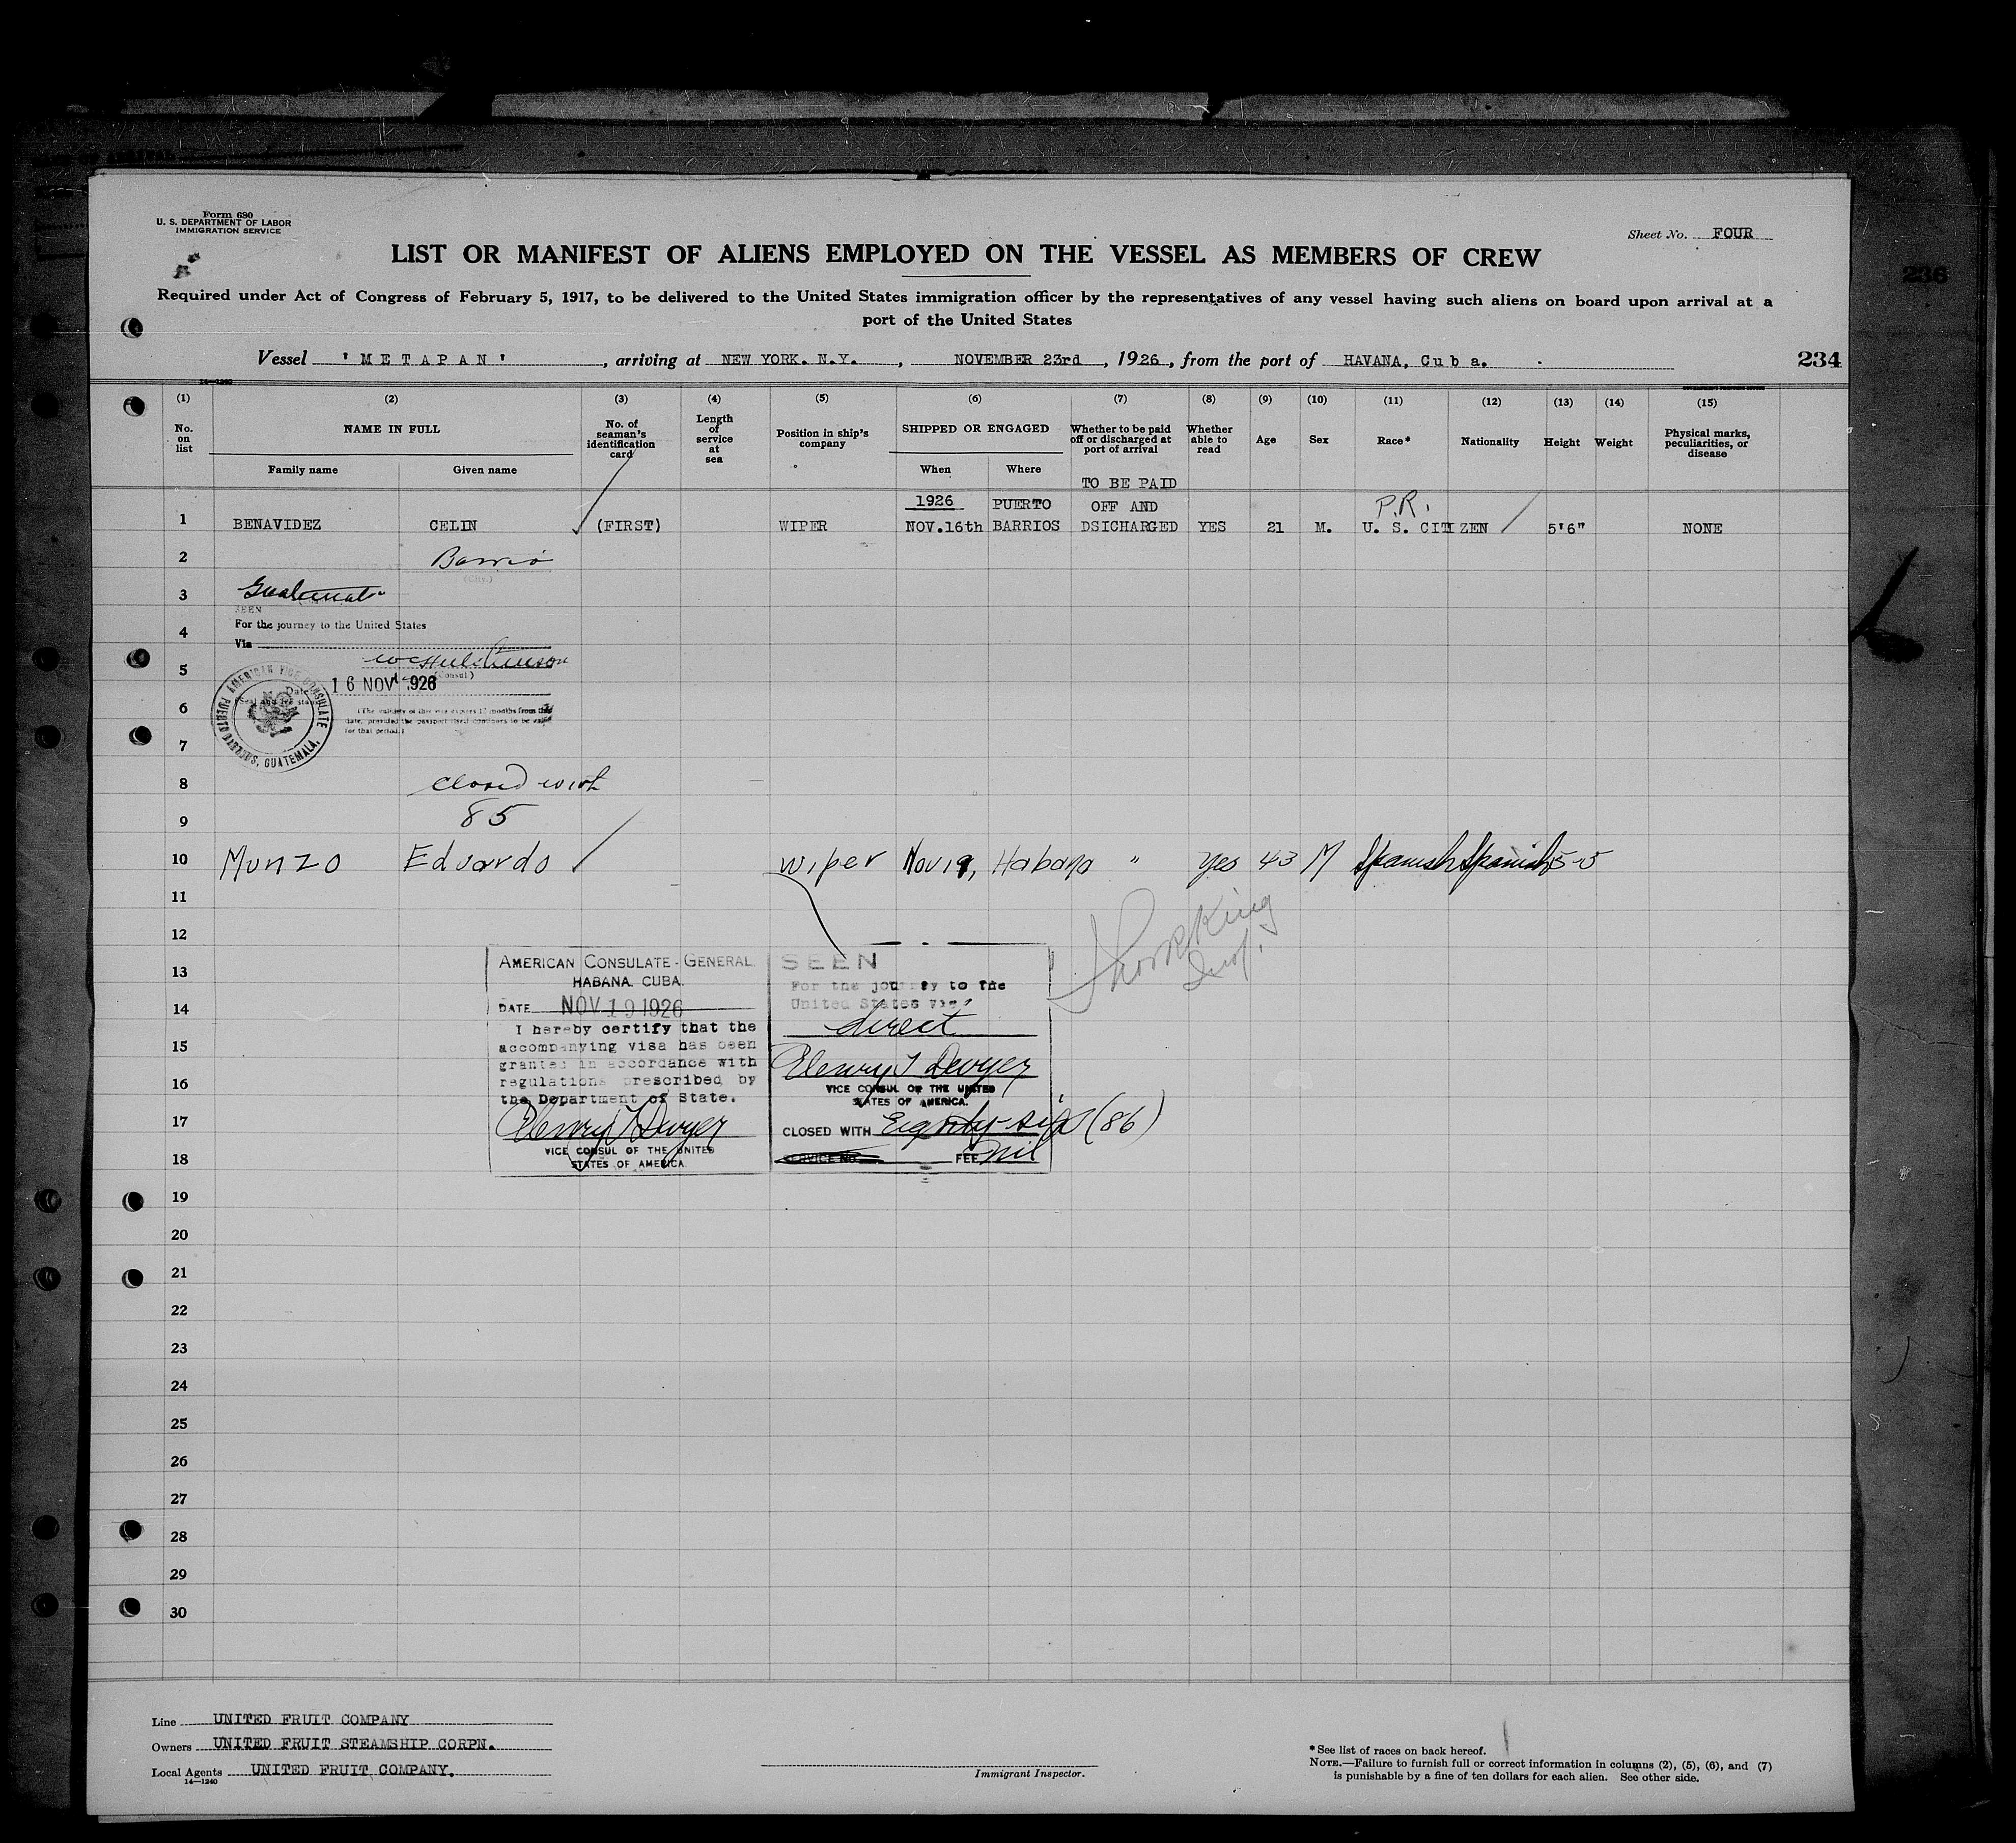 Form 680
U. S. DEPARTMENT OF LABOR
IMMIGRATION SERVICE
Sheet No. FOUR
LIST OR MANIFEST OF ALIENS EMPLOYED ON THE VESSEL AS MEMBERS OF CREW
236
Required under Act of Congress of February 5, 1917, to be delivered to the United States immigration officer by the representatives of any vessel having such aliens on board upon arrival at a
port of the United States
Vessel 'METAPAN', arriving at NEW YORK. N.Y., NOVEMBER 23rd, 1926, from the port of HAVANA, Cuba. 234
14—1240
(1) (2) (3) (4) (5) (6) (7) (8) (9) (10) (11) (12) (13) (14) (15)
No. on list
NAME IN FULL
Family name
Given name
No. of seaman's identification card
Length of service at sea
Position in ship's company
SHIPPED OR ENGAGED
When
Where
Whether to be paid off or discharged at port of arrival
Whether able to read
Age
Sex
Race*
Nationality
Height
Weight
Physical marks, peculiarities, or disease
TO BE PAID
1926 PUERTO OFF AND P.R.
1 BENAVIDEZ CELIN (FIRST) WIPER NOV.16th BARRIOS DSICHARGED YES 21 M. U. S. CITIZEN 5'6" NONE
2 Barrio
(City.)
3 Guatemala
SEEN
4 For the journey to the United States
Via
5
(Consul)
Date 16 NOV 1926
AMERICAN VICE CONSULATE
PUERTO BARRIOS, GUATEMALA.
6 (The validity of this visa expires 12 months from this
date, provided the passport used continues to be valid
for that period.)
7
8 closed with
9 85
10 Munzo Eduardo wiper Nov 19, Habana " Yes 43 M Spanish Spanish 5-5
11
12
13 AMERICAN CONSULATE-GENERAL
HABANA. CUBA.
14 DATE NOV 19 1926
I hereby certify that the
15 accompanying visa has been
granted in accordance with
16 regulations prescribed by
the Department of State.
17 Henry T Dwyer
VICE CONSUL OF THE UNITED
18 STATES OF AMERICA.
SEEN
For the journey to the
United States via
direct
Henry T Dwyer
VICE CONSUL OF THE UNITED
STATES OF AMERICA.
CLOSED WITH Eighty-six (86)
SERVICE No. FEE nil
19
20
21
22
23
24
25
26
27
28
29
30
Line UNITED FRUIT COMPANY
Owners UNITED FRUIT STEAMSHIP CORPN.
Local Agents UNITED FRUIT COMPANY.
14—1240
Immigrant Inspector.
*See list of races on back hereof.
NOTE.—Failure to furnish full or correct information in columns (2), (5), (6), and (7)
is punishable by a fine of ten dollars for each alien. See other side.